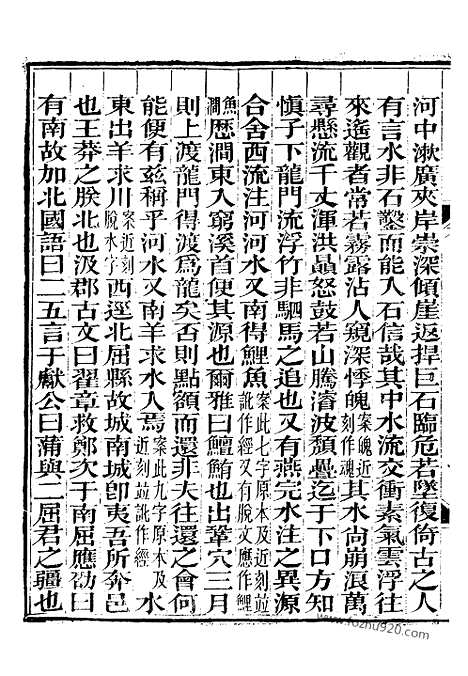 河中漱廣夾岸崇深傾崖返捍巨石臨危若墜復倚古之人
有言水非石鑿而能入石信哉其中水流交衝素氣雲浮往
來遙觀者常若霧露沾人窺深悸魄案魄近刻作魂其水尚崩浪萬
尋懸流千丈渾洪贔怒鼓若山騰濬波頹疊迄于下口方知
慎子下龍門流浮竹非駟馬之追也又有燕完水注之異源
合舍西流注河河水又南得鯉魚案此七字原本及近刻並訛作經又有脫文應作鯉
魚澗歷澗東入窮溪首便其源也爾雅曰鱣鮪也出鞏穴三月
則上渡龍門得渡爲龍矣否則點額而還非夫往還之會何
能便有茲稱乎河水又南羊求水入焉案此九字原本及近刻並訛作經水
東出羊求川案近刻脫水字西逕北屈縣故城南城卽夷吾所奔邑
也王莽之朕北也汲郡古文曰翟章救鄭次于南屈應劭曰
有南故加北國語曰二五言于獻公曰蒲與二屈君之疆也
www.fozhu920.com